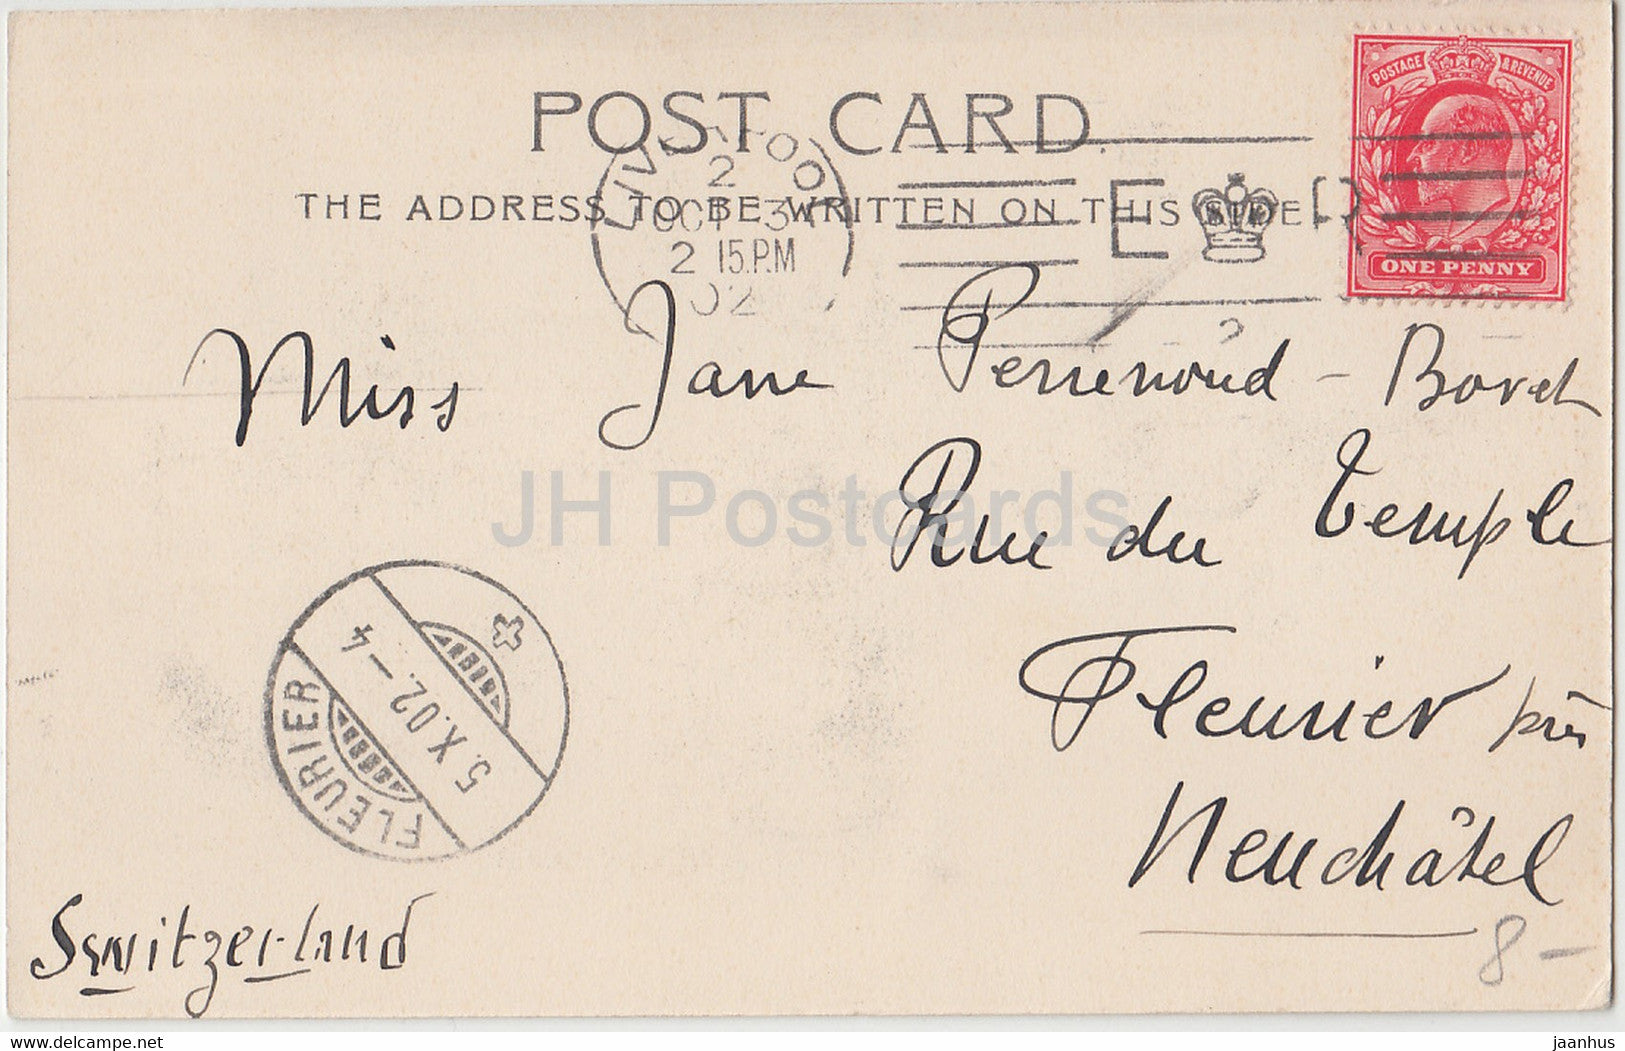 POST CARD.
THE ADDRESS TO BE WRITTEN ON THIS SIDE
LIVERPOOL
2
OCT 3
2 15.P.M
02
E R
POSTAGE & REVENUE
ONE PENNY
Miss Jane Perrenoud - Bovet
Rue du Temple
Fleurier près
Neuchâtel
Switzerland
FLEURIER
5.X.02.-4
8-
JH Postcards
delcampe.net
jaanhus